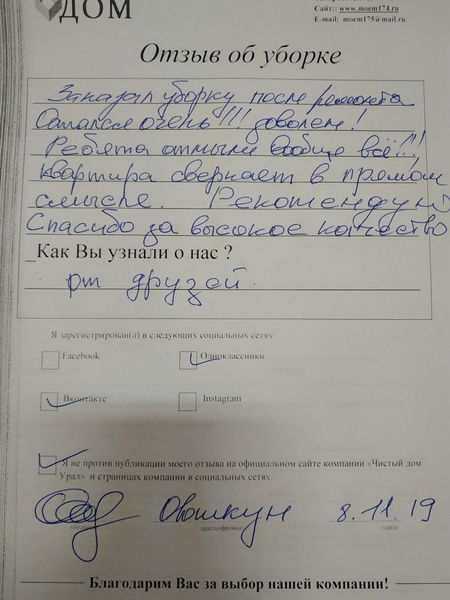 ДОМ
Сайт:: www.moem174.ru
E-mail: moem175@mail.ru
Отзыв об уборке
Заказал уборку после ремонта
Остался очень!!! доволен!
Ребята отмыли вообще всё!!!
Квартира сверкает в прямом
смысле. Рекомендую
Спасибо за высокое качество
Как Вы узнали о нас ?
от друзей.
Я зарегистрирован(а) в следующих социальных сетях:
Facebook
Одноклассники
Вконтакте
Instagram
Я не против публикации моего отзыва на официальном сайте компании «Чистый дом
Урал» и страницах компании в социальных сетях.
Овошкун 8.11.19
(расшифровка) (дата)
Благодарим Вас за выбор нашей компании!